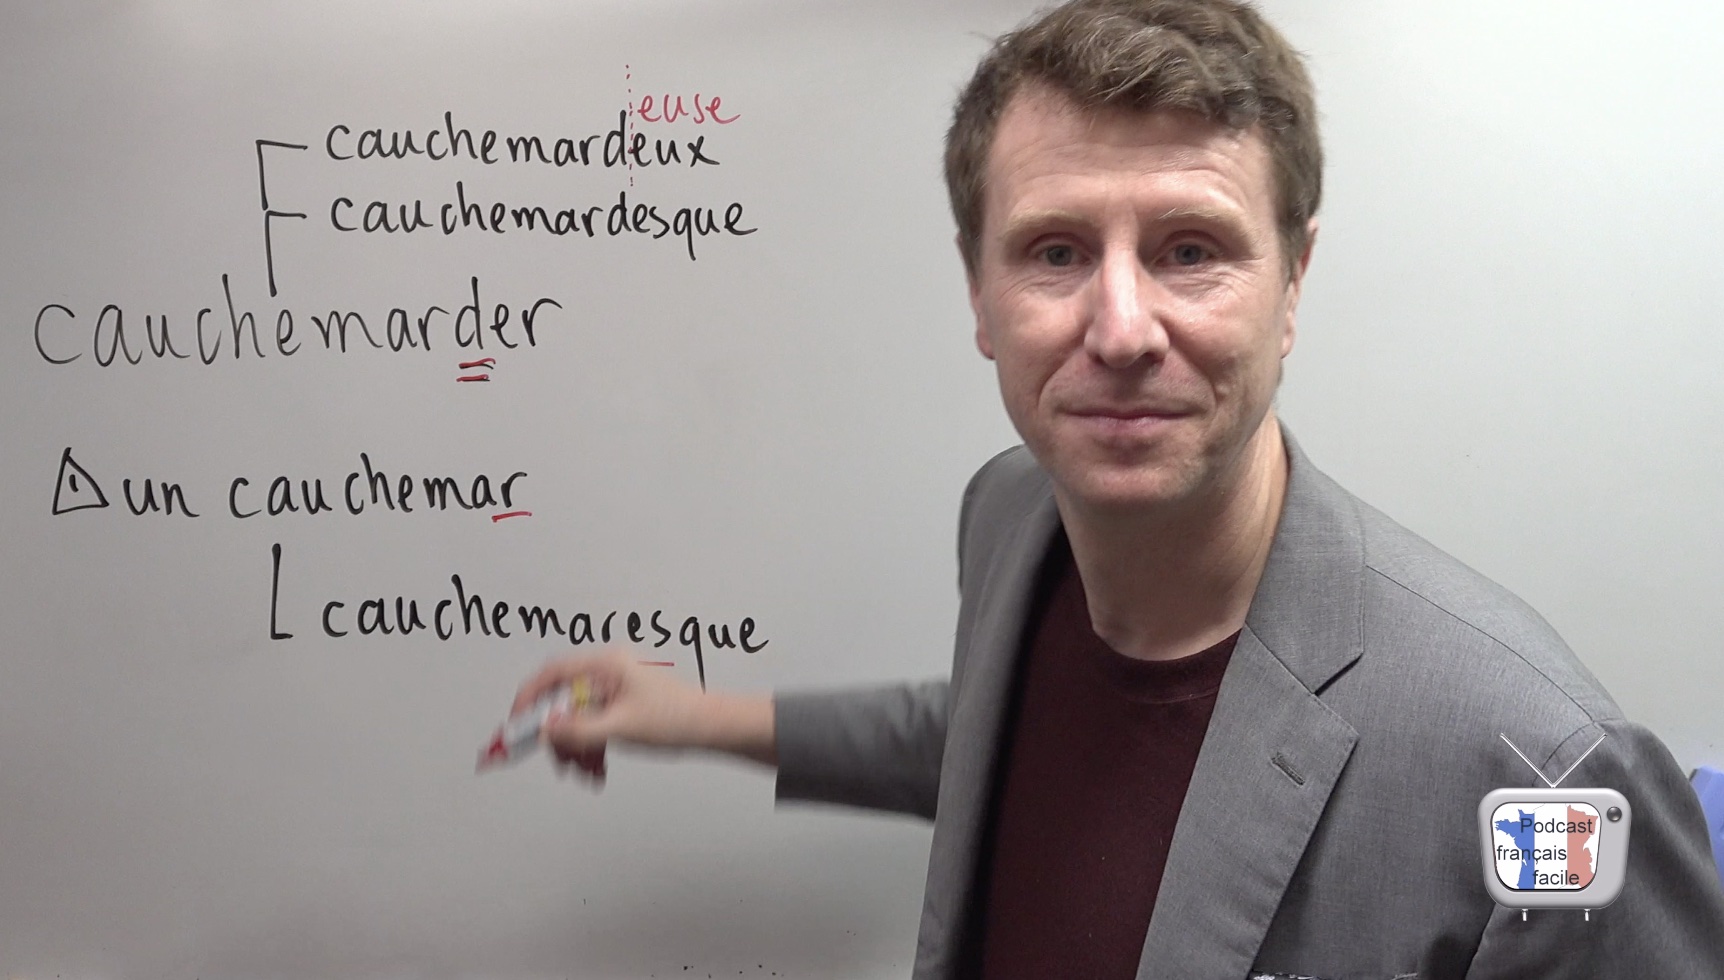 euse
cauchemardeux
cauchemardesque
cauchemarder
un cauchemar
cauchemaresque
Podcast
français
facile